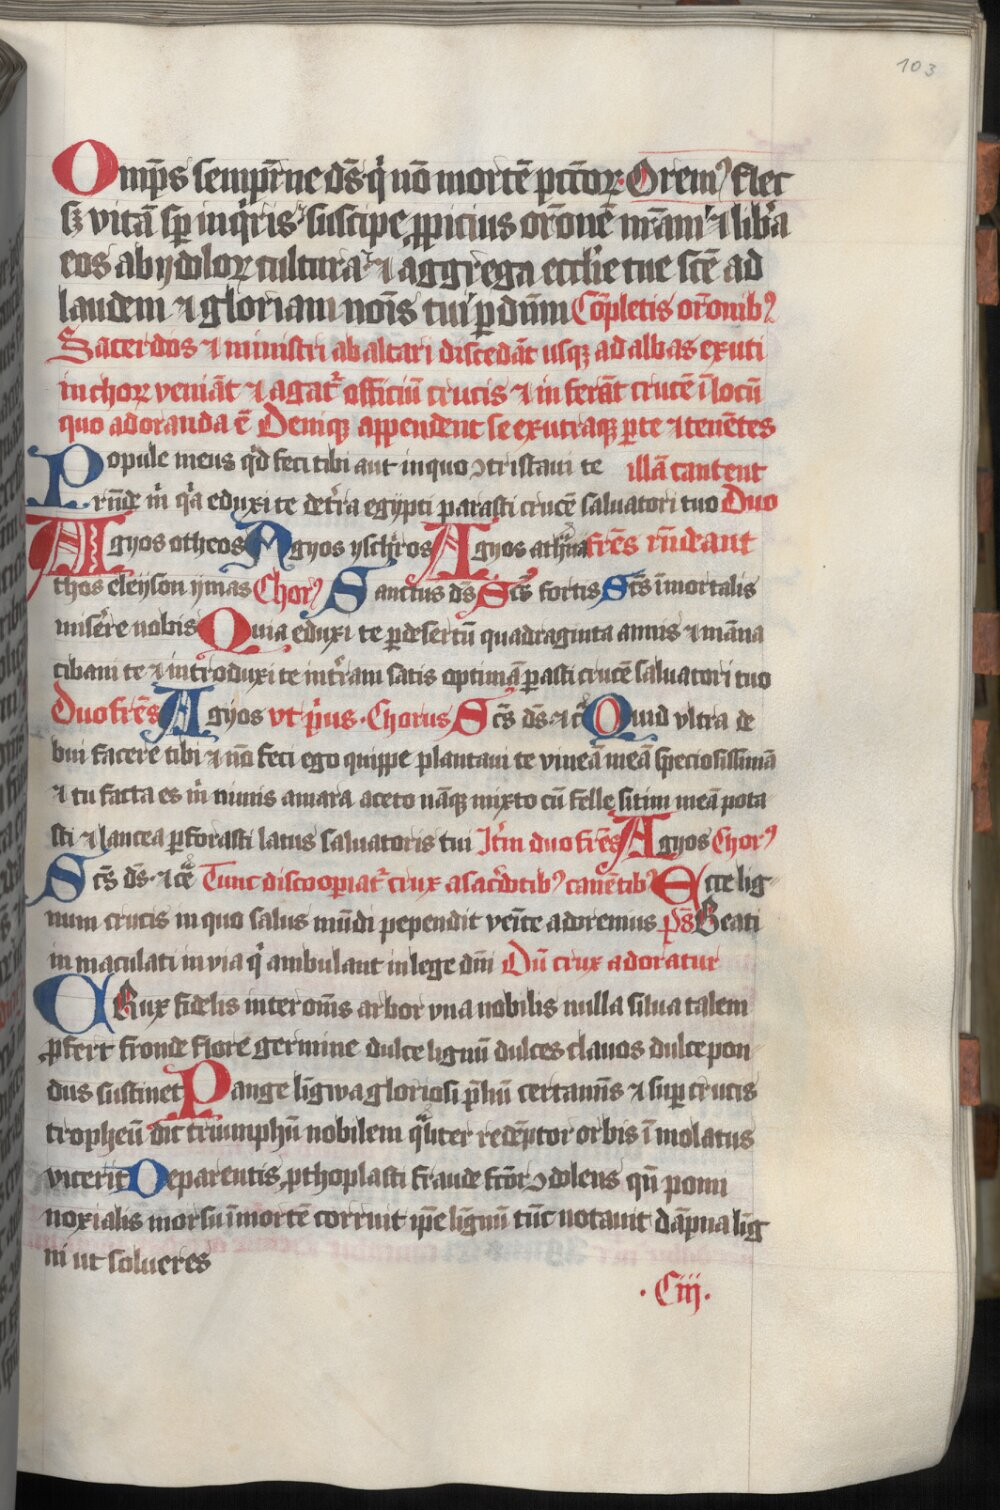 103
Omp̄s semp̄rne ds̄ qͥ nō mortē pctōꝝ Orem⁹ flec
sꝫ vitā sp̄ inqͥris suscipe ꝓpicius orōnē nr̄am ⁊ lib̾a
eos ab ydoloꝝ cultura ⁊ aggrega eccl̾ie tue scē ad
laudem ⁊ gloriam noīs tui ꝑ dnm̄ Cōpletis orōnib⁹
Sacerdos ⁊ ministri ab altari discedāt usqꝫ ad albas exuti
in choꝝ veniāt ⁊ agat᷑ officiū crucis ⁊ in ferāt crucē ī locū
quo adoranda ē Deniqꝫ appendent se ex utraqꝫ ꝑte ⁊ tenētes
Popule meus qͥd feci tibi aut in quo ꝯtristaui te illā cantent
rn̄de m̄ qͥa eduxi te det̾ra egypti parasti crucē saluatori tuo Duo
Agyos otheos Agyos yschͥros Agyos athͣna fr̄es rn̄deant
thos eleyson ymas Chor⁹ Sanctus ds̄ Scs̄ fortis Scs̄ īmortalis
miser̄e nobis Quia eduxi te ꝑ desertū quadraginta annis ⁊ māna
cibaui te ⁊ introduxi te int̾ram satis optimā ꝑasti crucē saluatori tuo
Duo fr̄es Agyos vt pͥus Chorus Scs̄ ds̄ ⁊c̄ Quid vltra de
bui facere tibi ⁊ nō feci ego quippe plantaui te vineā meā speciosissimā
⁊ tu facta es m̄ nimis amara aceto nāqꝫ mixto cū felle sitim meā pota
sti ⁊ lancea ꝑforasti latus saluatoris tui It̄m duo fr̄es Agyos Chor⁹
Scs̄ ds̄ ⁊cͣ Tunc discoopiat᷑ crux a sac̾dotib⁹ canētib⁹ Ecce lig
num crucis in quo salus mūdi pependit veīte adoremus ps̄ Beati
in maculati in via qͥ ambulant in lege dn̄i Dū crux adoratur
CRux fidelis inter om̄s arbor vna nobilis nulla silua talem
ꝓfert fronde flore germine dulce lignū dulces clauos dulce pon
dus sustinet Pange līgwa gloriosi p̄liū certamīs ⁊ suꝑ crucis
tropheū dic triumphū nobilem qͣliter redēptor orbis īmolatus
vicerit De parentis ꝓthoplasti fraude fc̄or ꝯdolens qn̄ pomi
noxialis morsu ī mortē corruit ip̄e lignū tūc notauit dāpna lig
ni ut solueres
·Ciij·